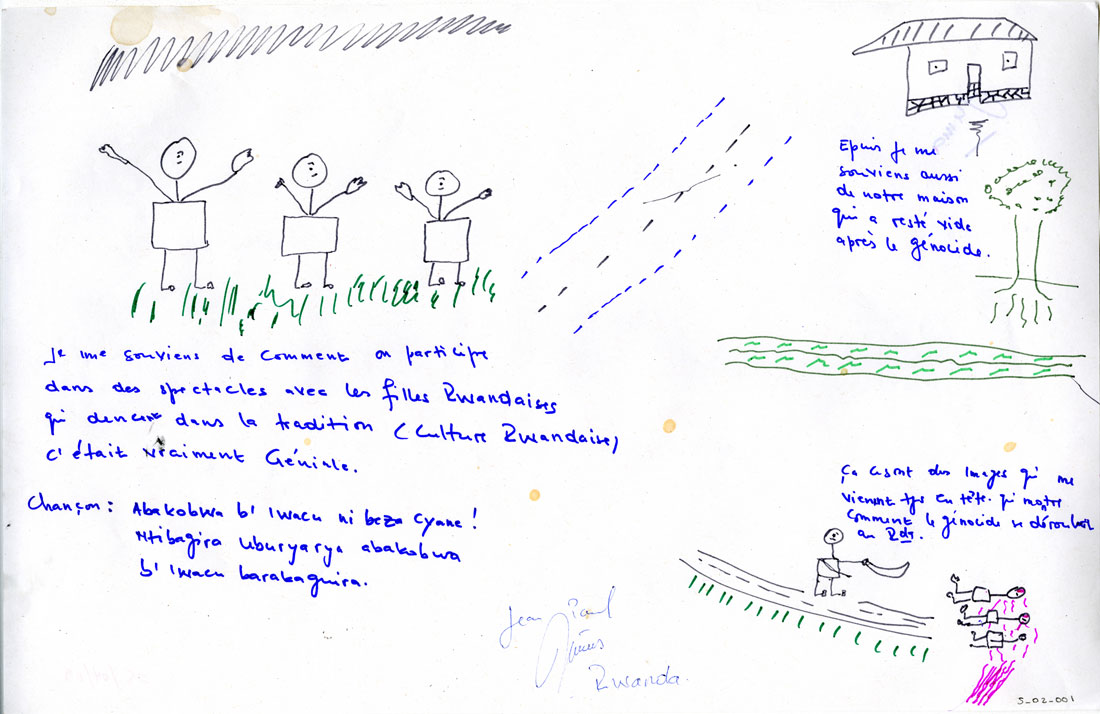 Je me souviens de comment on participe
dans des spectacles avec les filles Rwandaises
qui dencent dans la tradition (Culture Rwandaise)
c'était vraiment Géniale.
Chançon: Abakobwa b'iwacu ni beza cyane!
Ntibagira uburyarya abakobwa
b'iwacu barakagnira.
Epuis je me
souviens aussi
de notre maison
qui a resté vide
après le génocide.
Ça ce sont des Images qui me
viennent tjrs en tête. qui montre
comment le génocide se déroulait
au Rda.
Jean Paul
Rwanda.
S_02_001